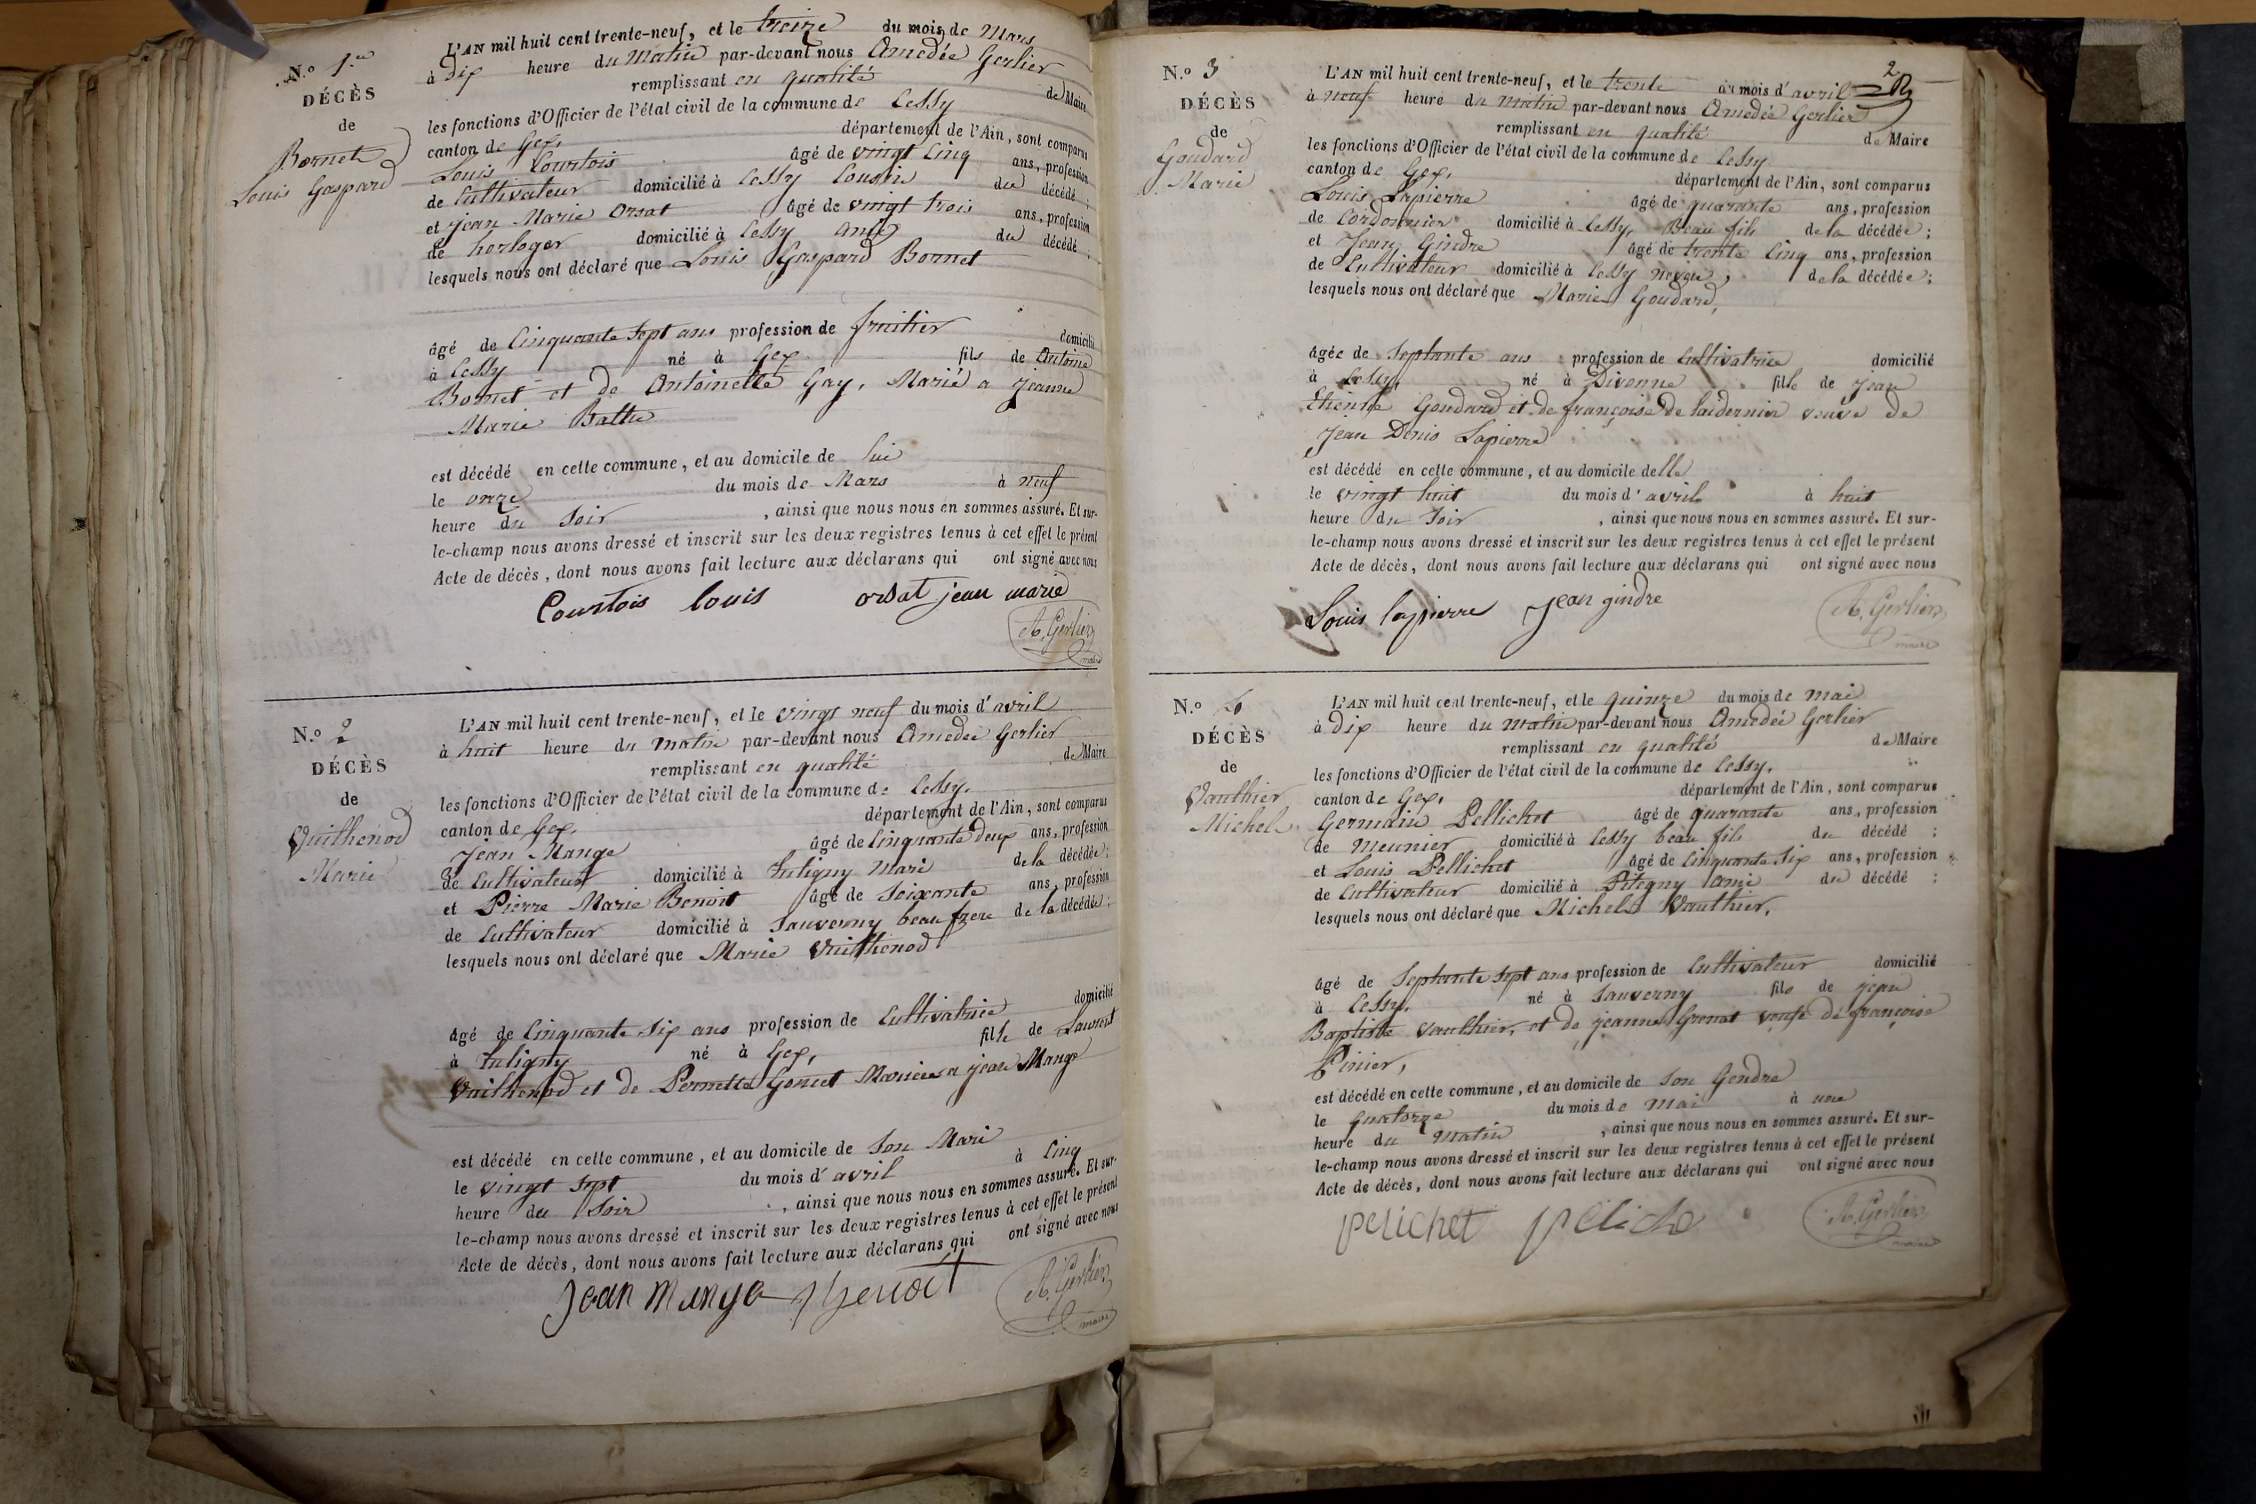 N.º 1.er
DÉCÈS
de
Bornet
Louis Gaspard
L'AN mil huit cent trente-neuf, et le treize du mois de Mars
à dix heure du matin par-devant nous Amedée Gerlier
remplissant en qualité de Maire
les fonctions d'Officier de l'état civil de la commune de Cessy
canton de Gex, département de l'Ain, sont comparus
Louis Courtois âgé de vingt cinq ans, profession
de Cultivateur domicilié à Cessy Cousin du décédé ;
et Jean Marie Orsat âgé de vingt trois ans, profession
de horloger domicilié à Cessy ami du décédé ;
lesquels nous ont déclaré que Louis Gaspard Bornet
âgé de Cinquante Sept ans profession de fruitier domicilié
à Cessy né à Gex fils de Antoine
Bornet et de Antoinette Gay, Marié a Jeanne
Marie Balthe
est décédé en cette commune, et au domicile de lui
le onze du mois de Mars à neuf
heure du Soir, ainsi que nous nous en sommes assuré. Et sur-
le-champ nous avons dressé et inscrit sur les deux registres tenus à cet effet le présent
Acte de décès, dont nous avons fait lecture aux déclarans qui ont signé avec nous
Courtois louis orsat jean marie
A. Gerlier
maire
N.º 2
DÉCÈS
de
Vuithenod
Marie
L'AN mil huit cent trente-neuf, et le vingt neuf du mois d'avril
à huit heure du matin par-devant nous Amedée Gerlier
remplissant en qualité de Maire
les fonctions d'Officier de l'état civil de la commune de Cessy.
canton de Gex, département de l'Ain, sont comparus
Jean Mange âgé de Cinquante deux ans, profession
de Cultivateur domicilié à Tutigny Mari de la décédée ;
et Pierre Marie Benoit âgé de Soixante ans, profession
de Cultivateur domicilié à Sauverny beau frere de la décédée ;
lesquels nous ont déclaré que Marie Vuithenod
âgé de Cinquante Six ans profession de Cultivatrice domicilié
à Tutigny né à Gex, fille de Laurent
Vuithenod et de Pernette Goncet Mariée a jean Mange
est décédé en cette commune, et au domicile de Son Mari
le vingt sept du mois d'avril à Cinq
heure du Soir, ainsi que nous nous en sommes assuré. Et sur-
le-champ nous avons dressé et inscrit sur les deux registres tenus à cet effet le présent
Acte de décès, dont nous avons fait lecture aux déclarans qui ont signé avec nous
Jean mange Benoit
A. Gerlier
maire
2
N.º 3
DÉCÈS
de
Goudard
Marie
L'AN mil huit cent trente-neuf, et le trente du mois d'avril
à neuf heure du matin par-devant nous Amedée Gerlier
remplissant en qualité de Maire
les fonctions d'Officier de l'état civil de la commune de Cessy
canton de Gex, département de l'Ain, sont comparus
Louis Lapierre âgé de quarante ans, profession
de Cordonnier domicilié à Cessy, Beau fils de la décédée ;
et Jean Gindre âgé de trente Cinq ans, profession
de Cultivateur domicilié à Cessy neveu, de la décédée ;
lesquels nous ont déclaré que Marie Goudard,
âgée de Septante ans profession de Cultivatrice domicilié
à Cessy, né à Divonne fille de Jean
Etienne Goudard et de françoise de laidernier veuve de
Jean Denis Lapierre
est décédé en cette commune, et au domicile delle
le vingt huit du mois d'avril à huit
heure du Soir, ainsi que nous nous en sommes assuré. Et sur-
le-champ nous avons dressé et inscrit sur les deux registres tenus à cet effet le présent
Acte de décès, dont nous avons fait lecture aux déclarans qui ont signé avec nous
Louis lapierre Jean gindre
A. Gerlier
maire
N.º
DÉCÈS
de
Vauthier
Michel
L'AN mil huit cent trente-neuf, et le quinze du mois de mai
à dix heure du matin par-devant nous Amedée Gerlier
remplissant en qualité de Maire
les fonctions d'Officier de l'état civil de la commune de Cessy.
canton de Gex, département de l'Ain, sont comparus
Germain Pellichet âgé de quarante ans, profession
de Meunier domicilié à Cessy beau fils du décédé ;
et Louis Pellichet âgé de Cinquante Six ans, profession
de Cultivateur domicilié à Pitegny ami du décédé ;
lesquels nous ont déclaré que Michel Vauthier,
âgé de Septante Sept ans profession de Cultivateur domicilié
à Cessy, né à Sauverny fils de jean
Baptiste Vauthier, et de jeanne Grenat veuf de françoise
Pinier,
est décédé en cette commune, et au domicile de Son Gendre
le Quatorze du mois de Mai à une
heure du matin, ainsi que nous nous en sommes assuré. Et sur-
le-champ nous avons dressé et inscrit sur les deux registres tenus à cet effet le présent
Acte de décès, dont nous avons fait lecture aux déclarans qui ont signé avec nous
pelichet peliche
A. Gerlier
maire